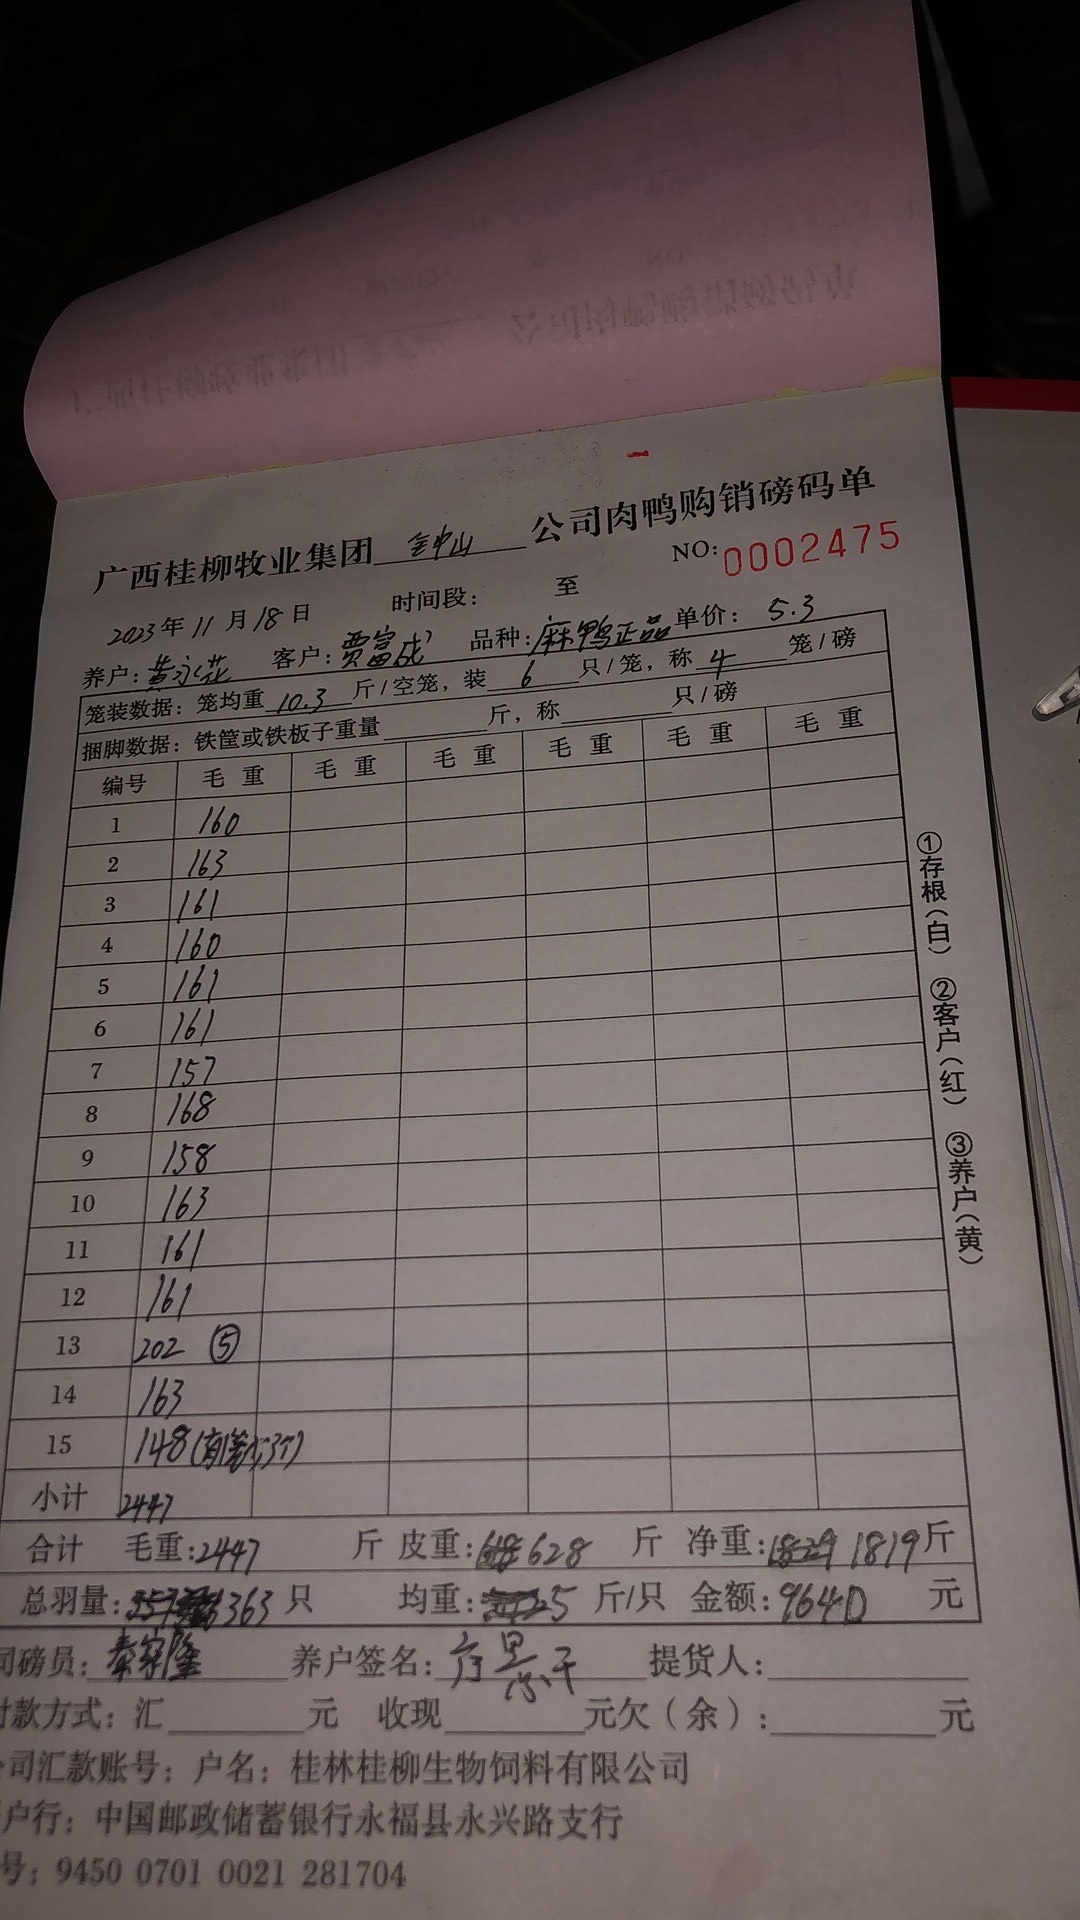 广西桂柳牧业集团 金中山 公司肉鸭购销磅码单
2023年11月18日 时间段： 至 NO:0002475
养户:黄永花 客户:贾富成 品种:麻鸭正品 单价: 5.3
笼装数据: 笼均重 10.3 斤/空笼，装 6 只/笼，称 4 笼/磅
捆脚数据: 铁筐或铁板子重量 斤，称 只/磅
编号 毛重 毛重 毛重 毛重 毛重 毛重
1 160
2 163
3 161
4 160
5 161
6 161
7 157
8 168
9 158
10 163
11 161
12 161
13 202 ⑤
14 163
15 148
小计 2447
合计 毛重:2447 斤 皮重: 628 斤 净重: 1819斤
总羽量: 363只 均重: 5 斤/只 金额:9640 元
司磅员: 秦家隆 养户签名: 提货人:
付款方式: 汇 元 收现 元欠（余）: 元
公司汇款账号: 户名: 桂林桂柳生物饲料有限公司
户行: 中国邮政储蓄银行永福县永兴路支行
号: 9450 0701 0021 281704
①存根(白) ②客户(红) ③养户(黄)